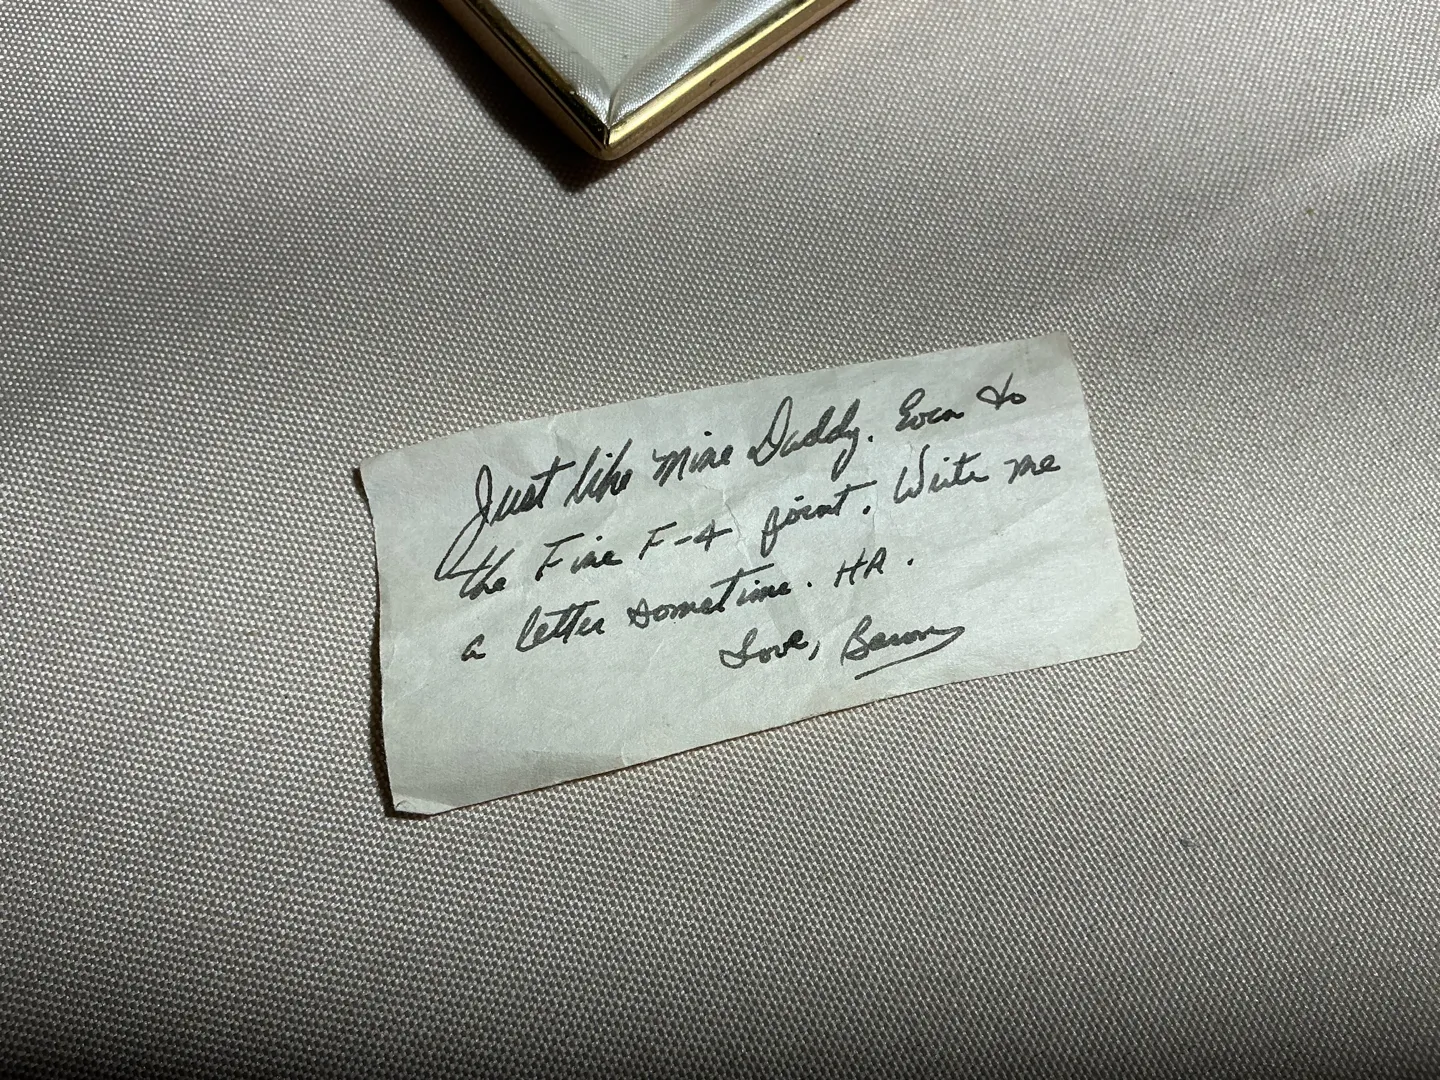 Just like mine Daddy. Even to
the Fine F-4 point. Write me
a letter sometime. HA.
Love, Baron